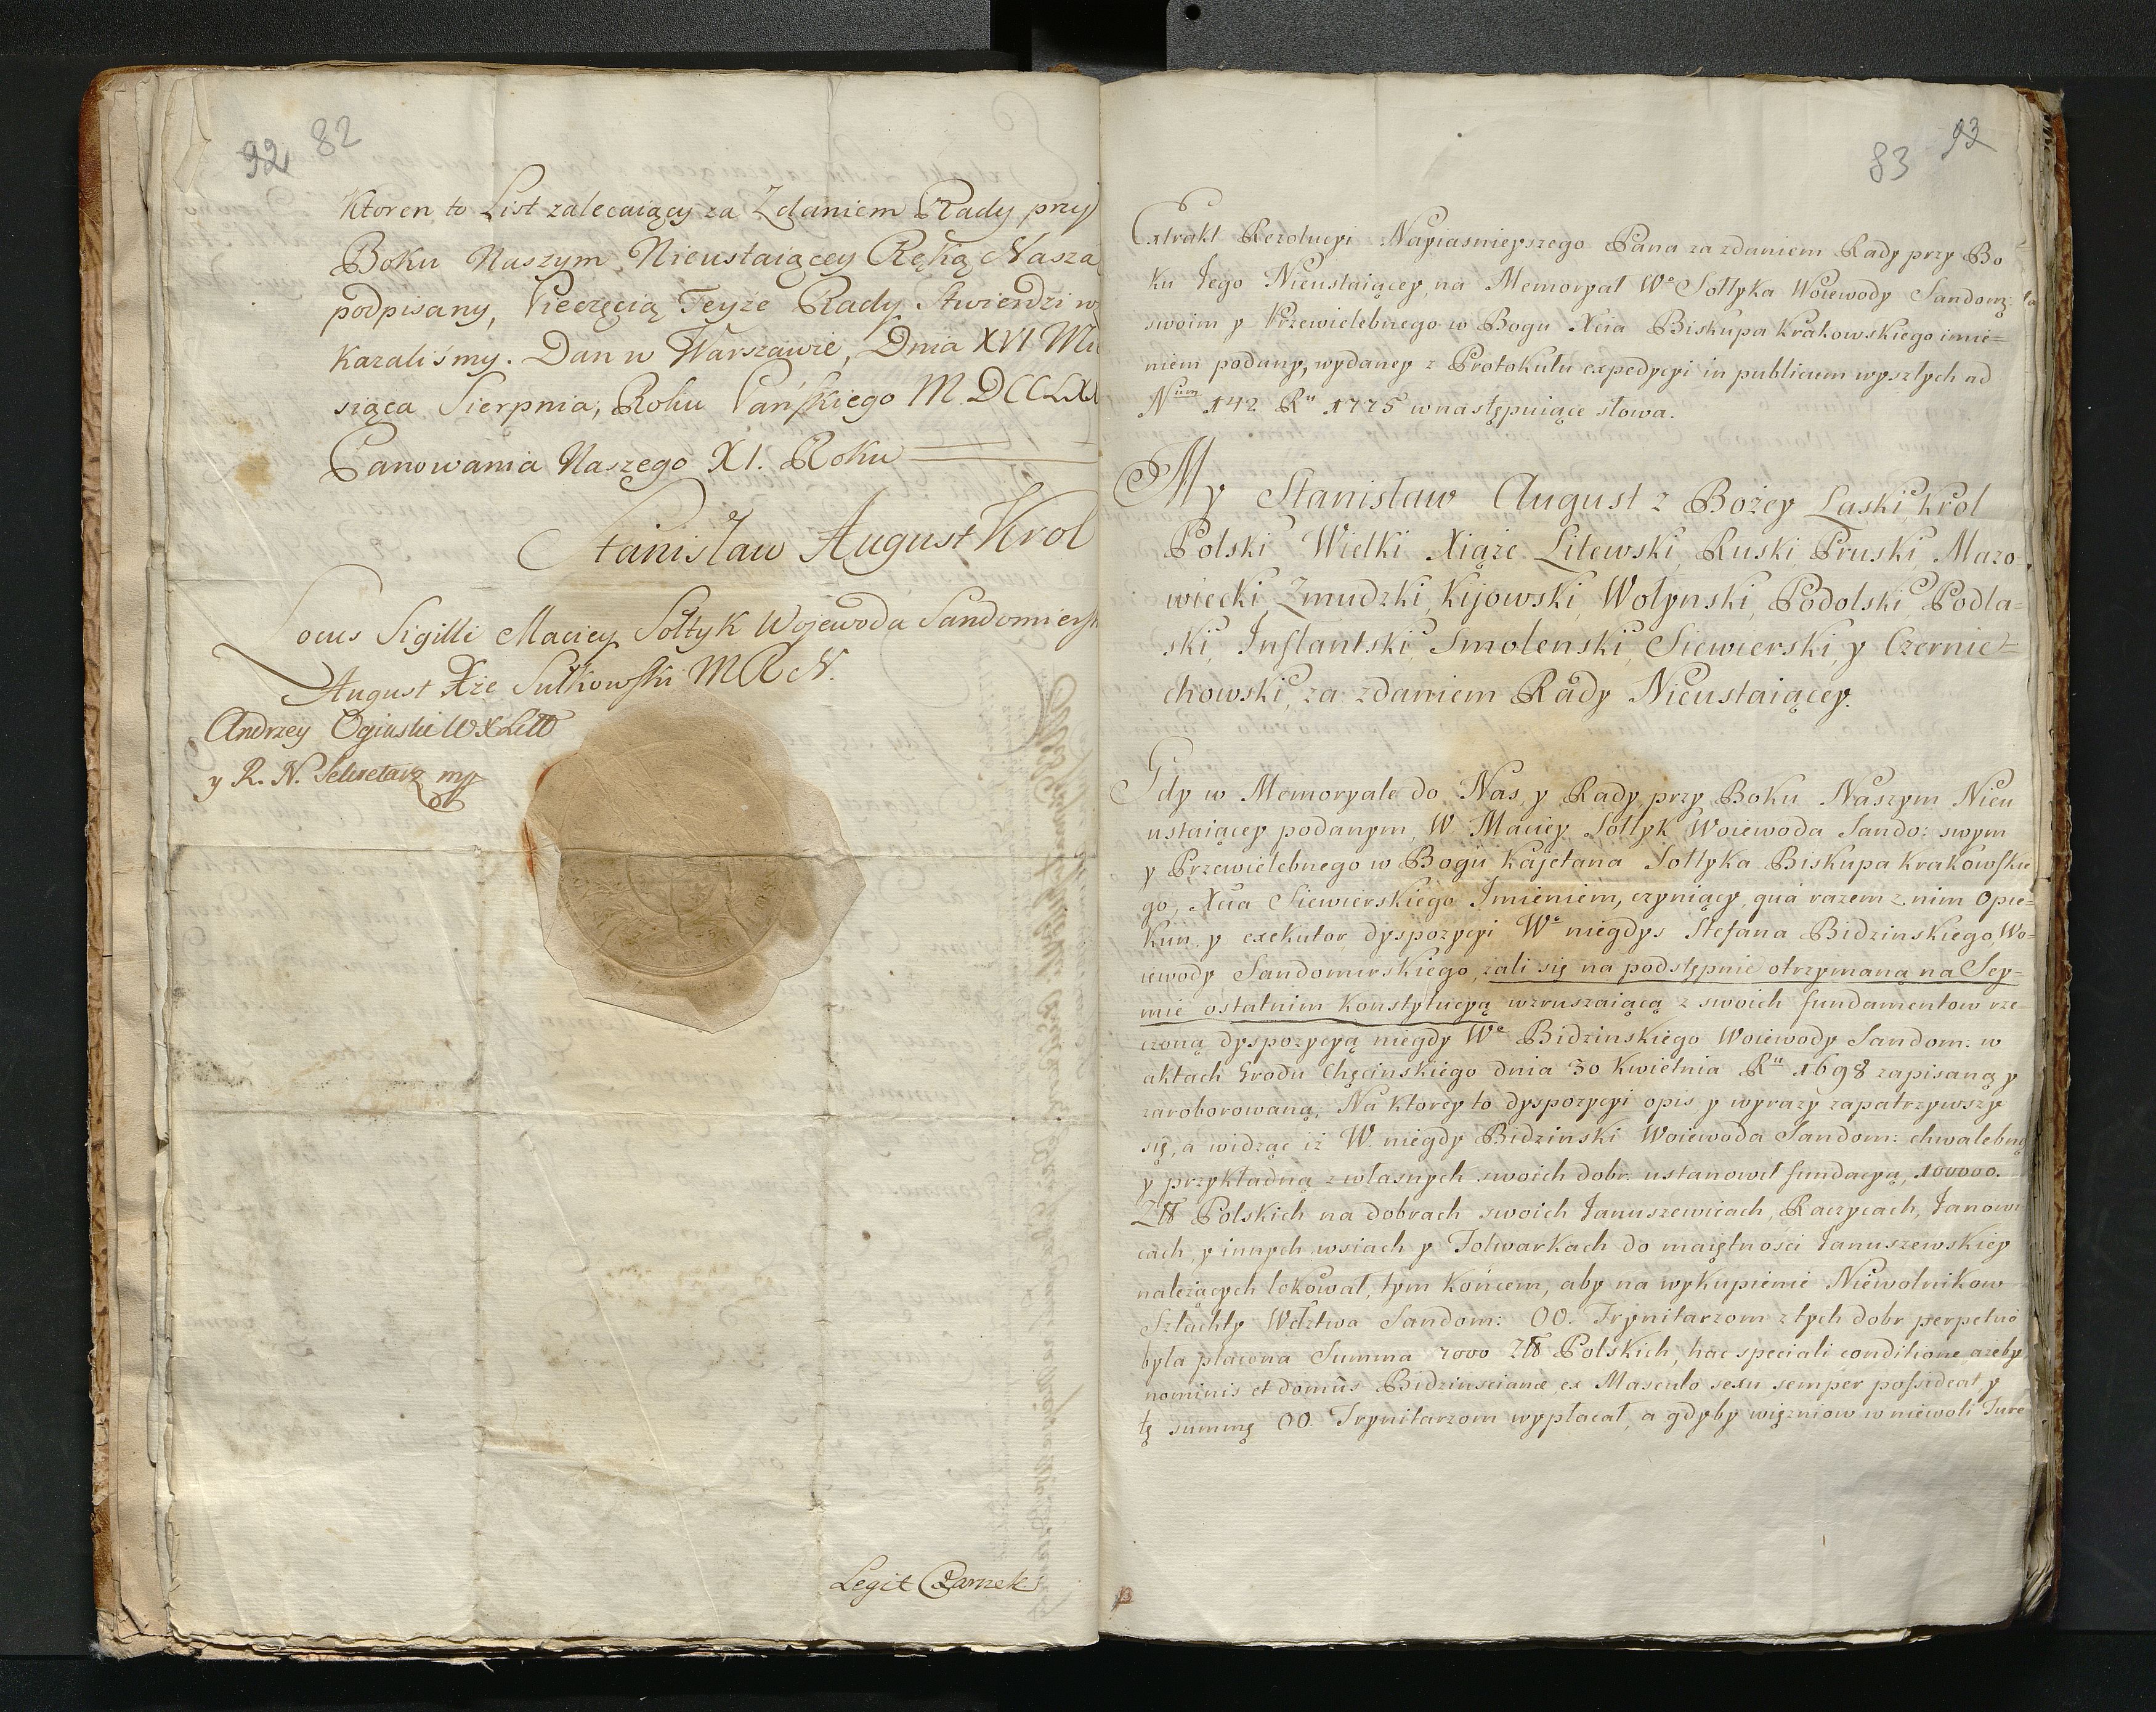 92 82
Ktoren to List zalecaiący za Zdaniem Rady przy
Boku Naszym Nieustaiącey Ręką Nasza
podpisany, Pieczęcią Teyże Rady Stwierdzi
kazaliśmy. Dan w Warszawie, Dnia XVI Mie
siąca Sierpnia, Roku Pańskiego M.DCCLXX
Panowania Naszego XI. Roku
Stanisław August Krol
Locus Sigilli Maciey Sołtyk Wojewoda Sandomiersk
August Xże Sułkowski M R N.
Andrzey Ogiński W X Litt
y R. N. Sekretarz mp
Legit
83 93
Extrakt Rezolucyi Nayiasnieyszego Pana za zdaniem Rady przy Bo
ku Jego Nieustaiącey, na Memoryał We Sołtyka Woiewody Sandom:
swoim y Przewielebnego w Bogu Xcia Biskupa Krakowskiego imie=
niem podany, wydaney z Protokułu expedycyi in publicum wyszłych ad
Num 142 Ru 1775 w następuiące słowa.
My Stanisław August z Bożey Łaski Krol
Polski Wielki Xiąże Litewski, Ruski, Pruski, Mazo-
wiecki, Zmudzki, Kijowski, Wołynski, Podolski, Podla=
ski, Inflantski, Smolenski, Siewierski, y Czernie=
chowski, za zdaniem Rady Nieustaiącey.
Gdy w Memoryale do Nas, y Rady przy Boku Naszym Nieu
ustaiącey podanym, W. Maciey Sołtyk Woiewoda Sando: swym
y Przewielebnego w Bogu Kajetana Sołtyka Biskupa Krakowskie
go, Xcia Siewierskiego Jmieniem, czyniący, quá razem z nim Opie=
kun y exekutor dyspozycyi We niegdys Stefana Bidzinskiego, Wo=
iewody Sandomirskiego, żali się na podstępnie otrzymaną na Sey=
mie ostatnim Konstytucyą wzruszaiącą z swoich fundamentow rze
czoną dyspozycyą niegdy We Bidzinskiego Woiewody Sandom: w
aktach Grodu Chęcinskiego dnia 30 Kwietnia Ru 1698 zapisaną y
zaroborowaną; Na ktorey to dyspozycyi opis y wyrazy zapatrzywszy
się, a widząc iż W. niegdy Bidzinski Woiewoda Sandom: chwalebną
y przykładną z własnych swoich dobr ustanowił fundacyą, 100000.
Złł Polskich na dobrach swoich Januszewicach, Raczycach, Janowi
cach y innych wsiach y Folwarkach do maiętnosci Januszewskiey
należących lokował, tym końcem, aby na wykupienie Niewolnikow
Szlachty Wdztwa Sandom: OO. Trynitarzom z tych dobr perpetuò
była płacona Summa 7000 Złł Polskich, hac speciali conditione, ażeby
nominis et domûs Bidzinscianæ ex Masculo sexu semper possideat y
tę summę OO. Trynitarzom wypłacał, a gdyby więzniow w niewoli Ture